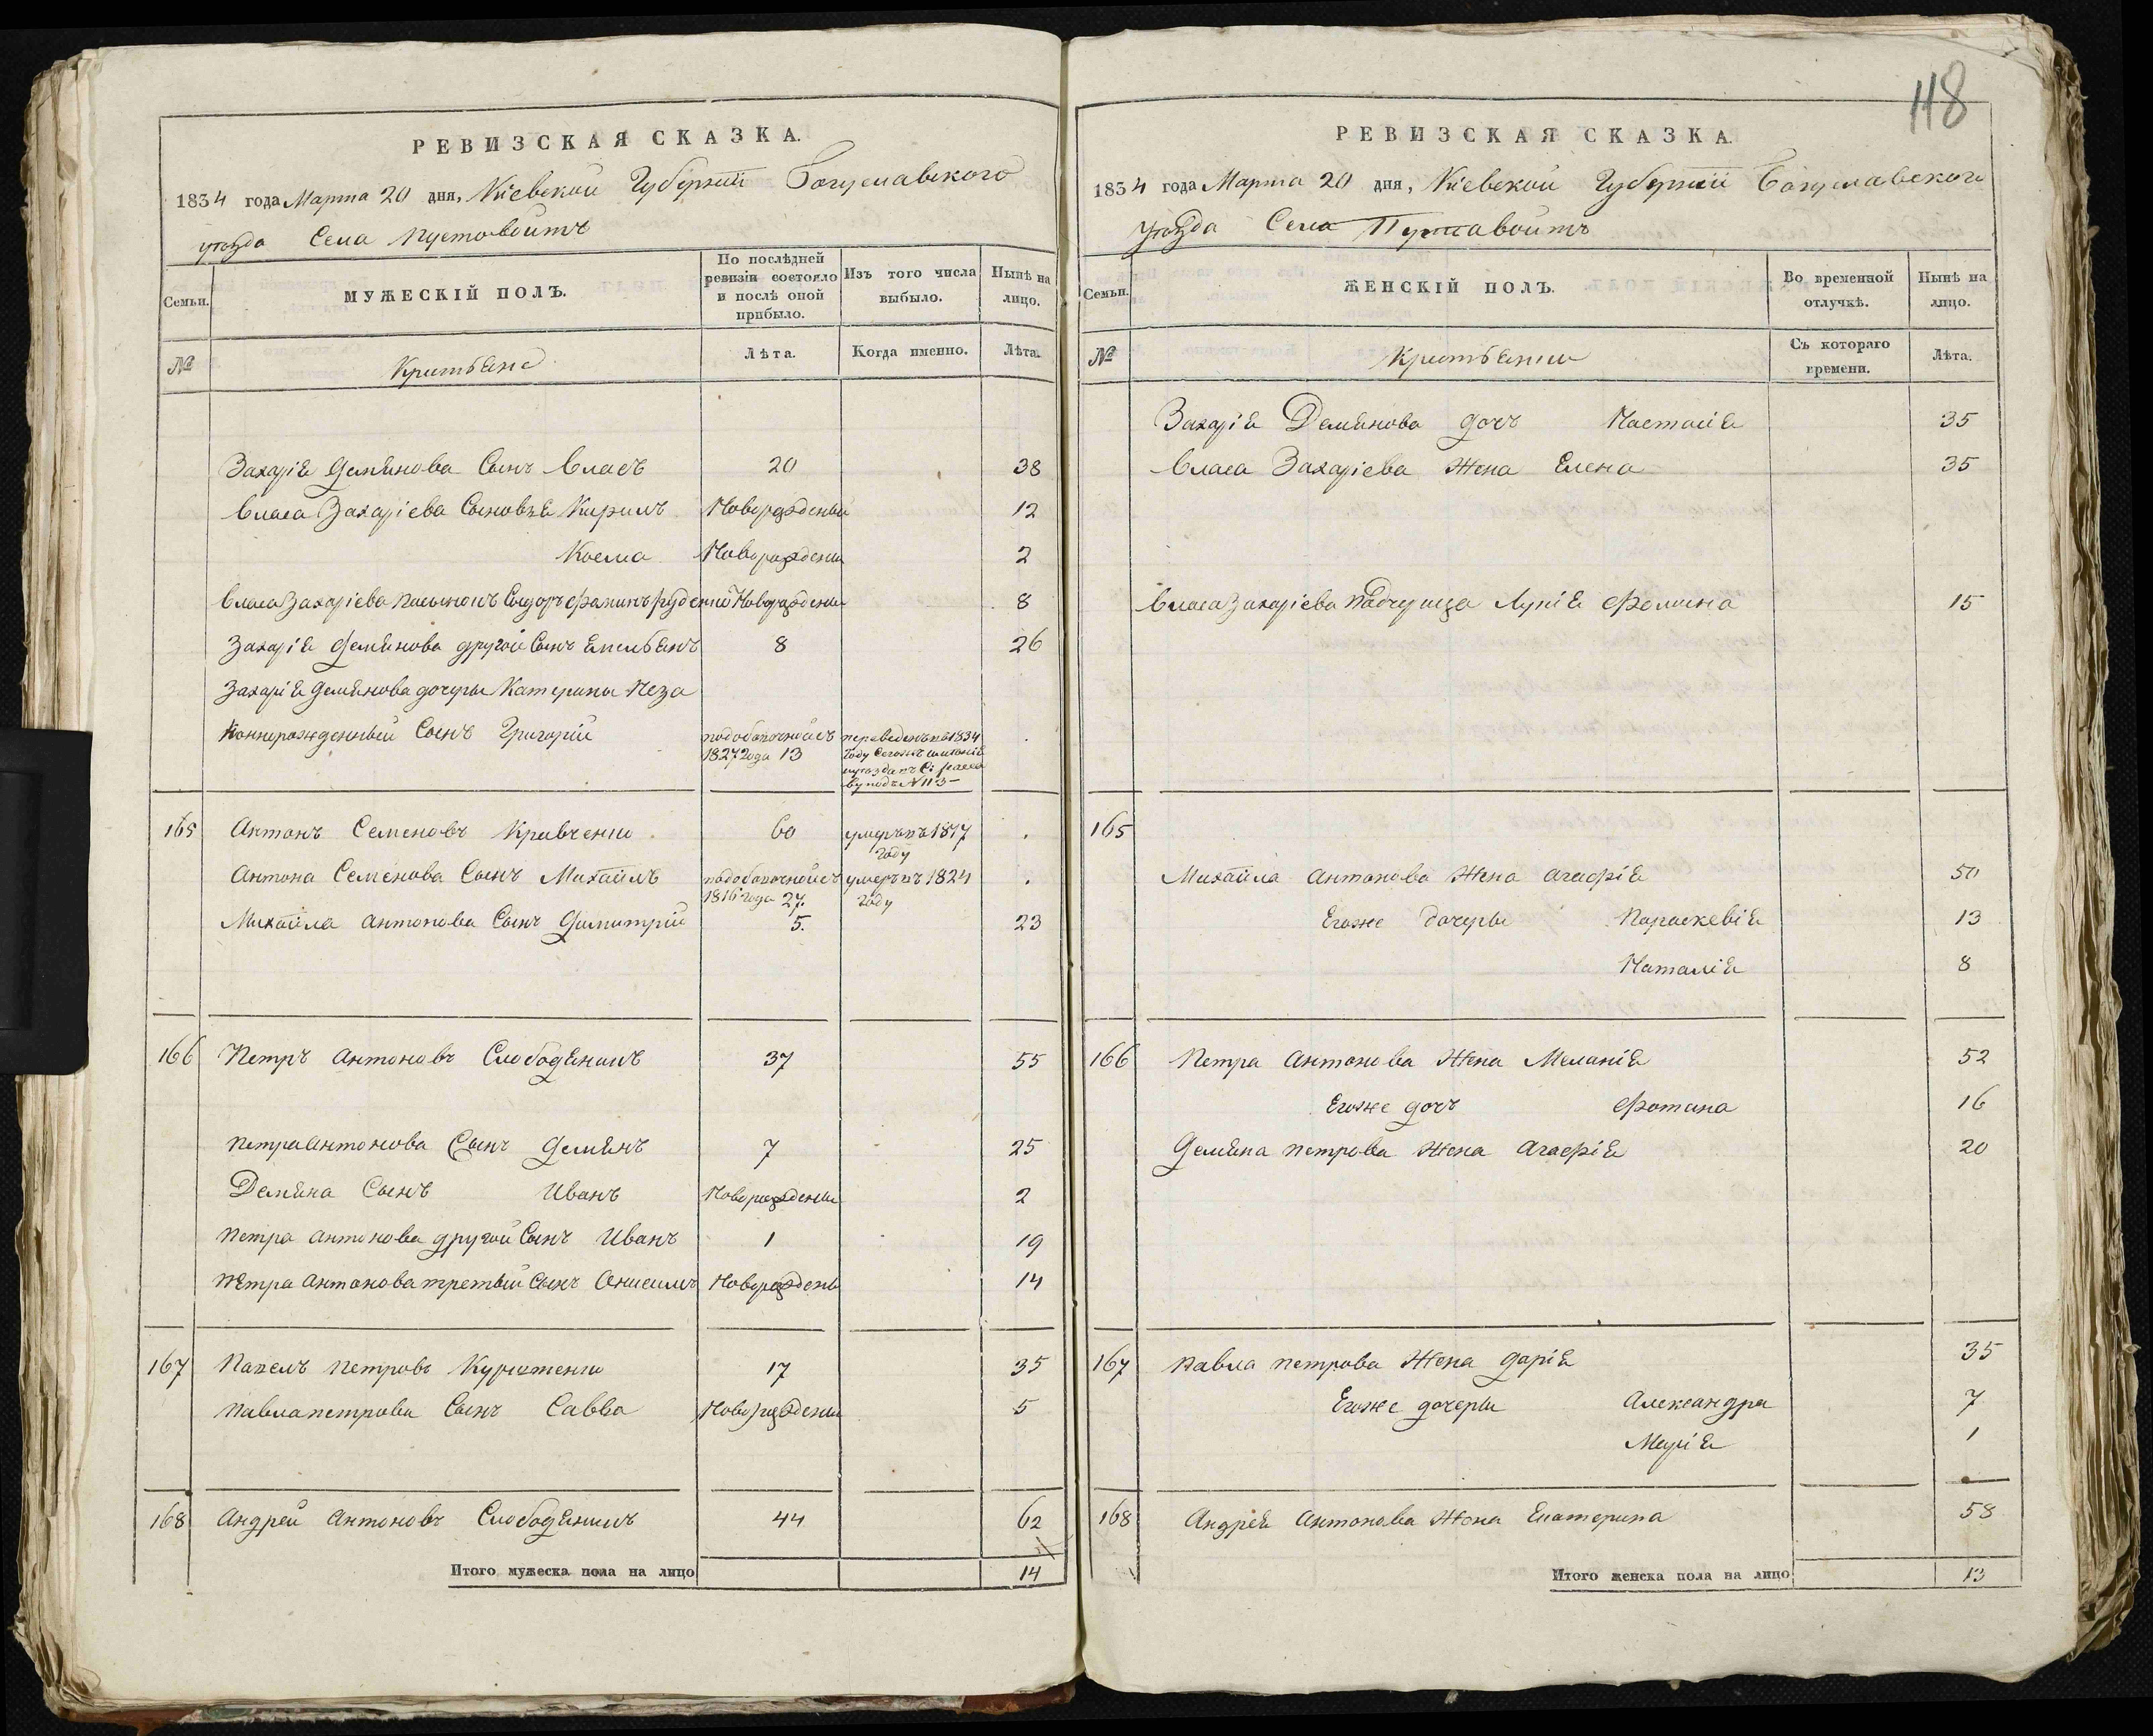 118
РЕВИЗСКАЯ СКАЗКА.
1834 года Марта 20 дня, Кіевской Губерніи Богуславского
уезда Села Пустовойтъ
Семьи.
МУЖЕСКІЙ ПОЛЪ.
По послѣдней ревизіи состояло и послѣ оной прибыло.
Изъ того числа выбыло.
Нынѣ на лицо.
№
Крестьяне
Лѣта.
Когда именно.
Лѣта.
Захарія Демянова Сынъ Власъ 20 38
Власа Захаріева Сыновья Кирилъ Новорожденый 12
Косма Новорожденный 2
Власа Захаріева пасынокъ Сидоръ Новорожден 8
Захарія Демянова другой Сынъ Емельянъ 8 26
Захарія Демянова дочеры Катерины Неза
коннорожденный Сынъ Григорій подобапочной съ 1827 года 13 переведенъ въ 1834 году №113
165 Антонъ Семеновъ Кравченко 60 умеръ въ 1817 году
Антона Семенова Сынъ Михайлъ подобапочной съ 1816 года 27. умеръ въ 1824 году
Михайла Антонова Сынъ Димитрій 5. 23
166 Петръ Антоновъ Слободяникъ 37 55
Петра Антонова Сынъ Демянъ 7 25
Демяна Сынъ Иванъ Новорожденны 2
Петра Антонова другой Сынъ Иванъ 1 19
Петра Антонова третьій Сынъ Онисимъ Новорождены 14
167 Павелъ Петровъ 17 35
Павла Петрова Сынъ Савва Новорожденны 5
168 Андрей Антоновъ Слободяникъ 44 62
Итого мужеска пола на лицо 14
РЕВИЗСКАЯ СКАЗКА.
1834 года Марта 20 дня, Кіевской Губерніи Богуславского
уезда Села Пуставойтъ
Семьи.
ЖЕНСКІЙ ПОЛЪ.
Во временной отлучкѣ.
Нынѣ на лицо.
№
Крестьянки
Съ котораго времени.
Лѣта.
Захарія Демянова дочъ Настасія 35
Власа Захаріева Жена Елена 35
Власа Захаріева Падчерица Лукія Фомина 15
165
Михайла Антонова Жена Агафія 50
Егоже дочеры Параскевія 13
Наталія 8
166 Петра Антонова Жена Меланія 52
Егоже дочъ Фотина 16
Демяна Петрова Жена Агафія 20
167 Павла Петрова Жена Дарія 35
Егоже дочеры Александра 7
Марія 1
168 Андрея Антонова Жена Екатерина 58
Итого женска пола на лицо 13